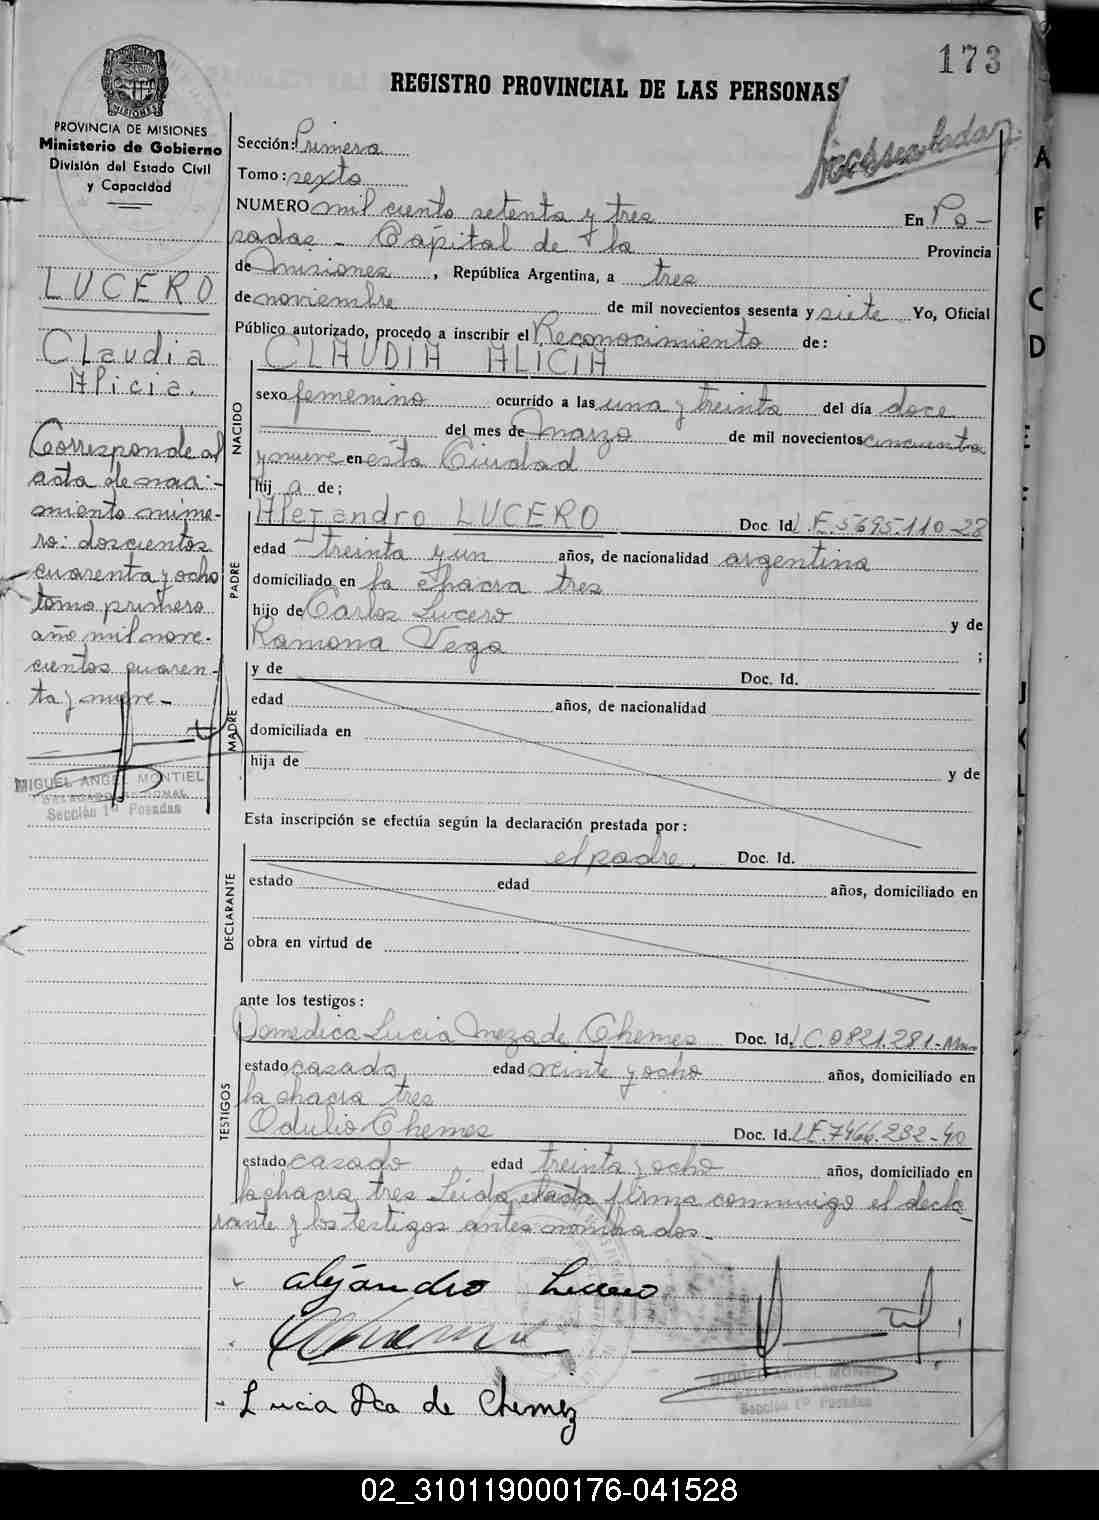 173
REGISTRO PROVINCIAL DE LAS PERSONAS
PROVINCIA DE MISIONES
Ministerio de Gobierno
División del Estado Civil
y Capacidad
Sección: Primera
Tomo: sexto
NUMERO mil ciento setenta y tres En Po-
sadas - Capital de la Provincia
de Misiones, República Argentina, a tres
de noviembre de mil novecientos sesenta y siete Yo, Oficial
Público autorizado, procedo a inscribir el Reconocimiento de:
CLAUDIA ALICIA
NACIDO
sexo femenino ocurrido a las una y treinta del día doce
del mes de Marzo de mil novecientos cincuenta
y nueve en esta Ciudad
hij a de;
PADRE
Alejandro LUCERO Doc. Id. L.E. 5695.110-28
edad treinta y un años, de nacionalidad argentina
domiciliado en la chacra tres
hijo de Carlos Lucero y de
Ramona Vega ;
MADRE
y de Doc. Id.
edad años, de nacionalidad
domiciliada en
hija de y de
Esta inscripción se efectúa según la declaración prestada por:
DECLARANTE
el padre. Doc. Id.
estado edad años, domiciliado en
obra en virtud de
ante los testigos:
TESTIGOS
Lucia Meza de Chemes Doc. Id. L.C. 0821.281-
estado casada edad veinte y ocho años, domiciliado en
la chacra tres
Odulio Chemes Doc. Id. L.E. 7466.232-40
estado casado edad treinta y ocho años, domiciliado en
la chacra tres Leida el acta firma conmigo el decla-
rante y los testigos antes nombrados.-
alejandro Lucero
Lucia Dca de Chemez
MIGUEL ANGEL MONTIEL
Sección 1º Posadas
LUCERO
Claudia
Alicia.
Corresponde al
acta de naci-
miento núme-
ro: doscientos
cuarenta y ocho
tomo primero
año mil nove-
cientos cuaren-
ta y nueve-
MIGUEL ANGEL MONTIEL
DELEGADO REGIONAL
Sección 1ª Posadas
A
F
C
D
J
K
L
02_310119000176-041528